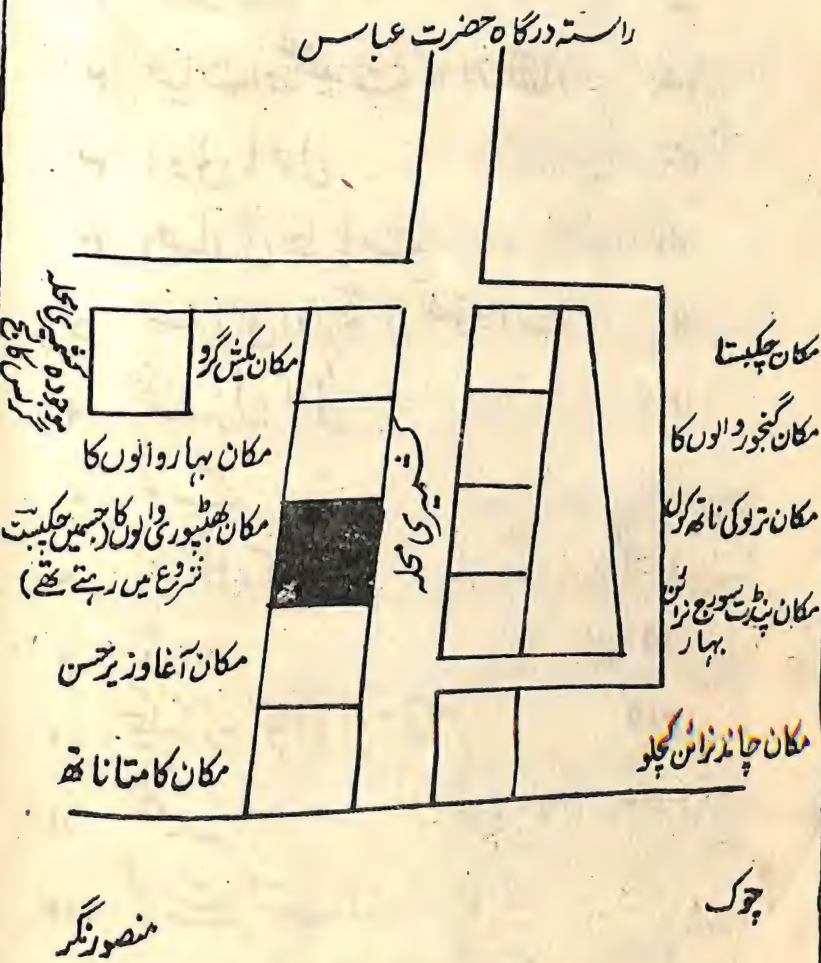 راستہ درگاہ حضرت عباس
مکان بکیش گرو
مکان بہار والوں کا
مکان بھٹپوری والوں کا (جسمیں چکبست
شروع میں رہتے تھے)
مکان آغا وزیر حسن
مکان کامتا ناتھ
کشمیری محلہ
مکان چکبستا
مکان گنجور والوں کا
مکان ترلوکی ناتھ کول
مکان پنڈت سورج نرائن
بہار
مکان چاند نرائن کچلو
چوک
منصور نگر